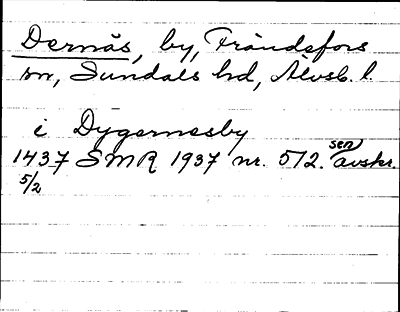 Dernäs, by, Frändefors
sn, Sundals hd, Älvsb. l.
i Dygernesby
1437 SMR 1937 nr. 512. sen avskr.
5/2